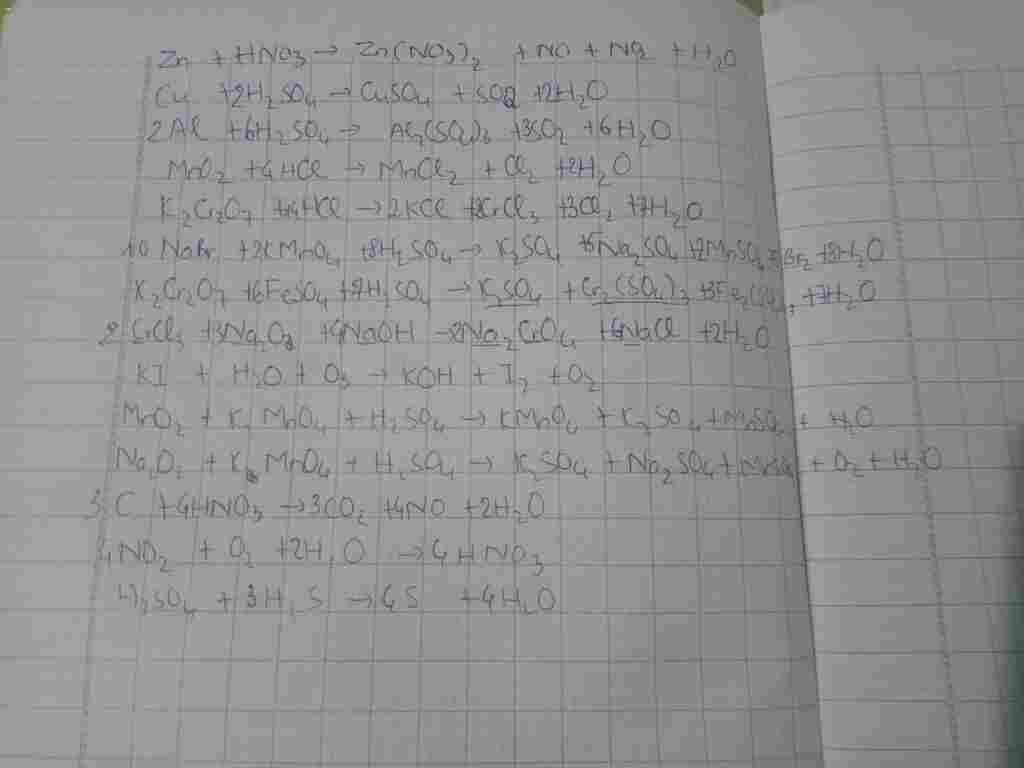 Zn + HNO₃ → Zn(NO₃)₂ + NO + NO₂ + H₂O
Cu +2H₂SO₄ → CuSO₄ + SO₂ +2H₂O
2Al +6H₂SO₄ → Al₂(SO₄)₃ +3SO₂ +6H₂O
MnO₂ +4HCl → MnCl₂ + Cl₂ +2H₂O
K₂Cr₂O₇ +14HCl → 2KCl +2CrCl₃ +3Cl₂ +7H₂O
10 NaBr +2KMnO₄ +8H₂SO₄ → K₂SO₄ +5Na₂SO₄ +2MnSO₄ +5Br₂ +8H₂O
K₂Cr₂O₇ +6FeSO₄ +7H₂SO₄ → K₂SO₄ + Cr₂(SO₄)₃ +3Fe₂(SO₄)₃ +7H₂O
2CrCl₃ +3Na₂O₂ +4NaOH → 2Na₂CrO₄ +6NaCl +2H₂O
KI + H₂O + O₃ → KOH + I₂ + O₂
MnO₂ + K₂MnO₄ + H₂SO₄ → KMnO₄ + K₂SO₄ + MnSO₄ + H₂O
Na₂O₂ + KMnO₄ + H₂SO₄ → K₂SO₄ + Na₂SO₄ + MnSO₄ + O₂ + H₂O
3C +4HNO₃ → 3CO₂ +4NO +2H₂O
4NO₂ + O₂ +2H₂O → 4HNO₃
H₂SO₄ + 3H₂S → 4S +4H₂O